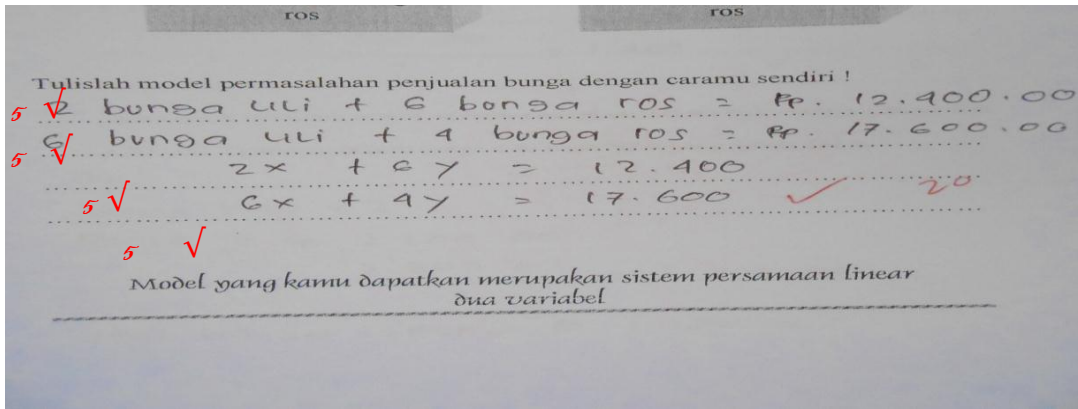 ros
ros
Tulislah model permasalahan penjualan bunga dengan caramu sendiri !
5 √ 2 bunga lili + 6 bonga ros = Rp. 12.400.00
5 √ 6 bunga lili + 4 bunga ros = Rp. 17.600.00
2x + 6y = 12.400
5 √ 6x + 4y = 17.600 ✓ 20
5 √
Model yang kamu dapatkan merupakan sistem persamaan linear
dua variabel